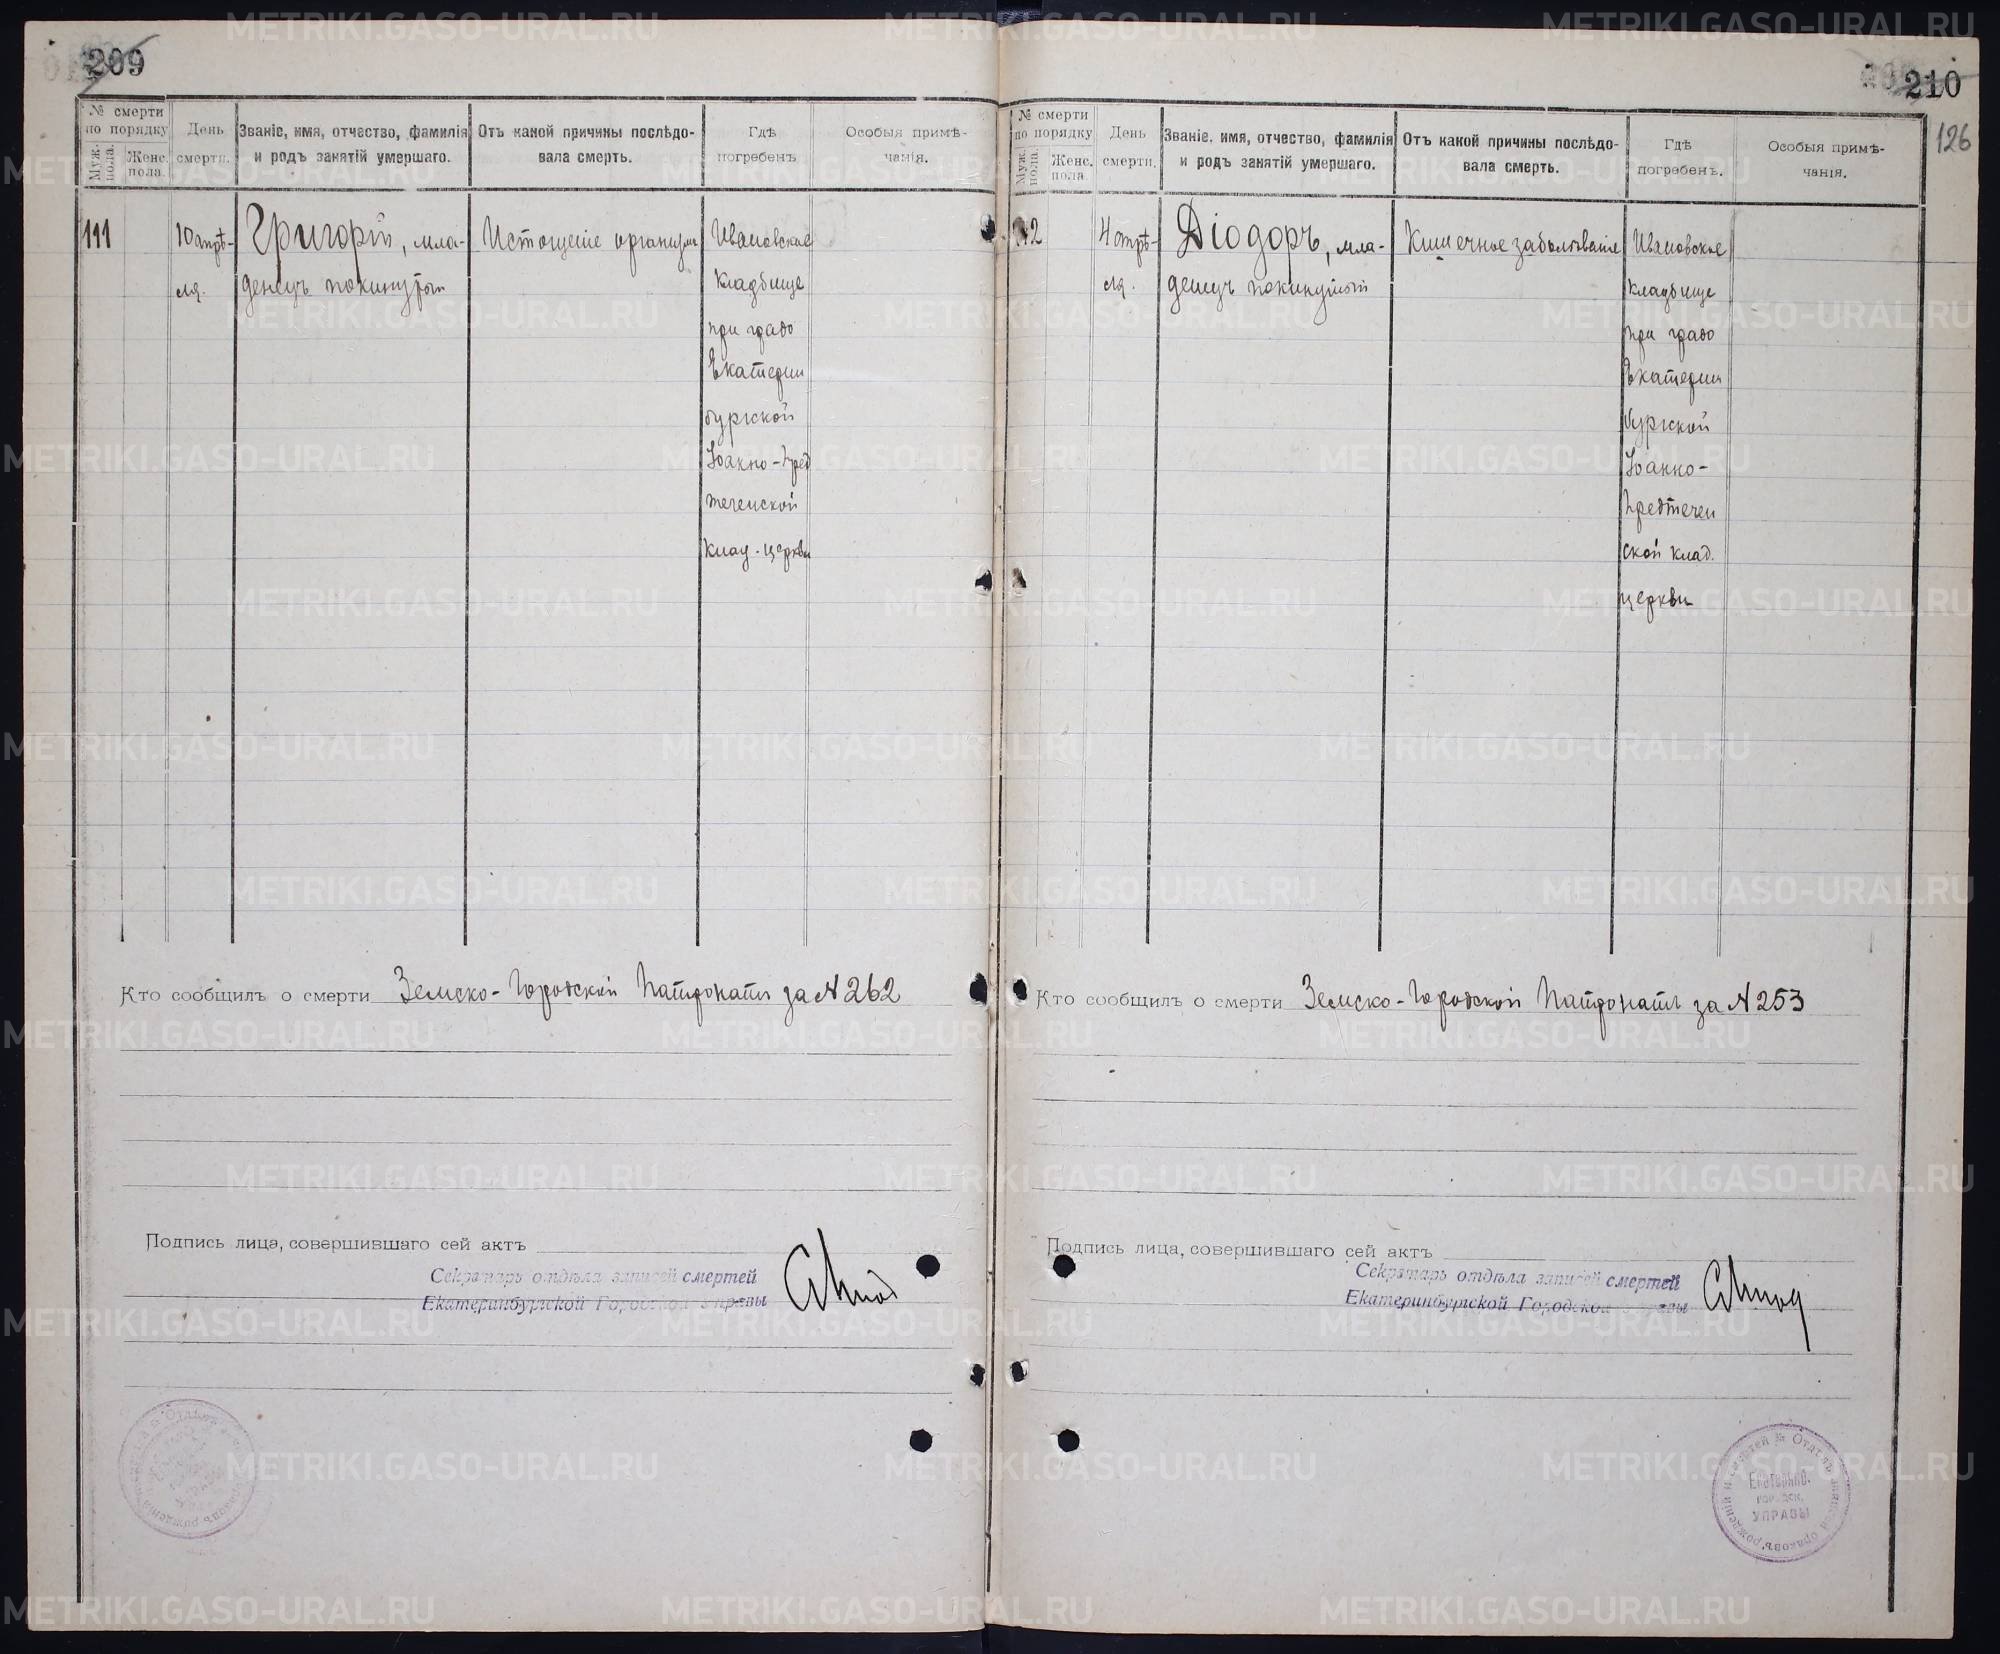 209
№ смерти по порядку
Муж. пола.
Женс. пола.
День смерти.
Званіе, имя, отчество, фамилія и родъ занятій умершаго.
Отъ какой причины послѣдовала смерть.
Гдѣ погребенъ
Особыя примѣчанія.
111
10 апрѣ-
ля.
Григорій, мла-
денецъ покинутый
Истощеніе организма
Ивановское
кладбище
при градо
Екатерин
бургской
Іоанно-Пред
теченской
клад. церкви
Кто сообщилъ о смерти Земско-Городской Патронатъ за № 262
Подпись лица, совершившаго сей актъ
Секретарь отдѣла записей смертей
Екатеринбургской Городской Управы
210
126
№ смерти по порядку
Муж. пола.
Женс. пола.
День смерти.
Званіе, имя, отчество, фамилія и родъ занятій умершаго.
Отъ какой причины послѣдовала смерть.
Гдѣ погребенъ.
Особыя примѣчанія.
112
4 апрѣ-
ля.
Діодоръ, мла-
денецъ покинутый
Кишечное заболѣваніе
Ивановское
кладбище
при градо
Екатерин
бургской
Іоанно-
Предтечен
ской клад.
церкви
Кто сообщилъ о смерти Земско-Городской Патронатъ за № 253
Подпись лица, совершившаго сей актъ
Секретарь отдѣла записей смертей
Екатеринбургской Городской Управы
Екатеринб.
городск.
УПРАВЫ
METRIKI.GASO-URAL.RU